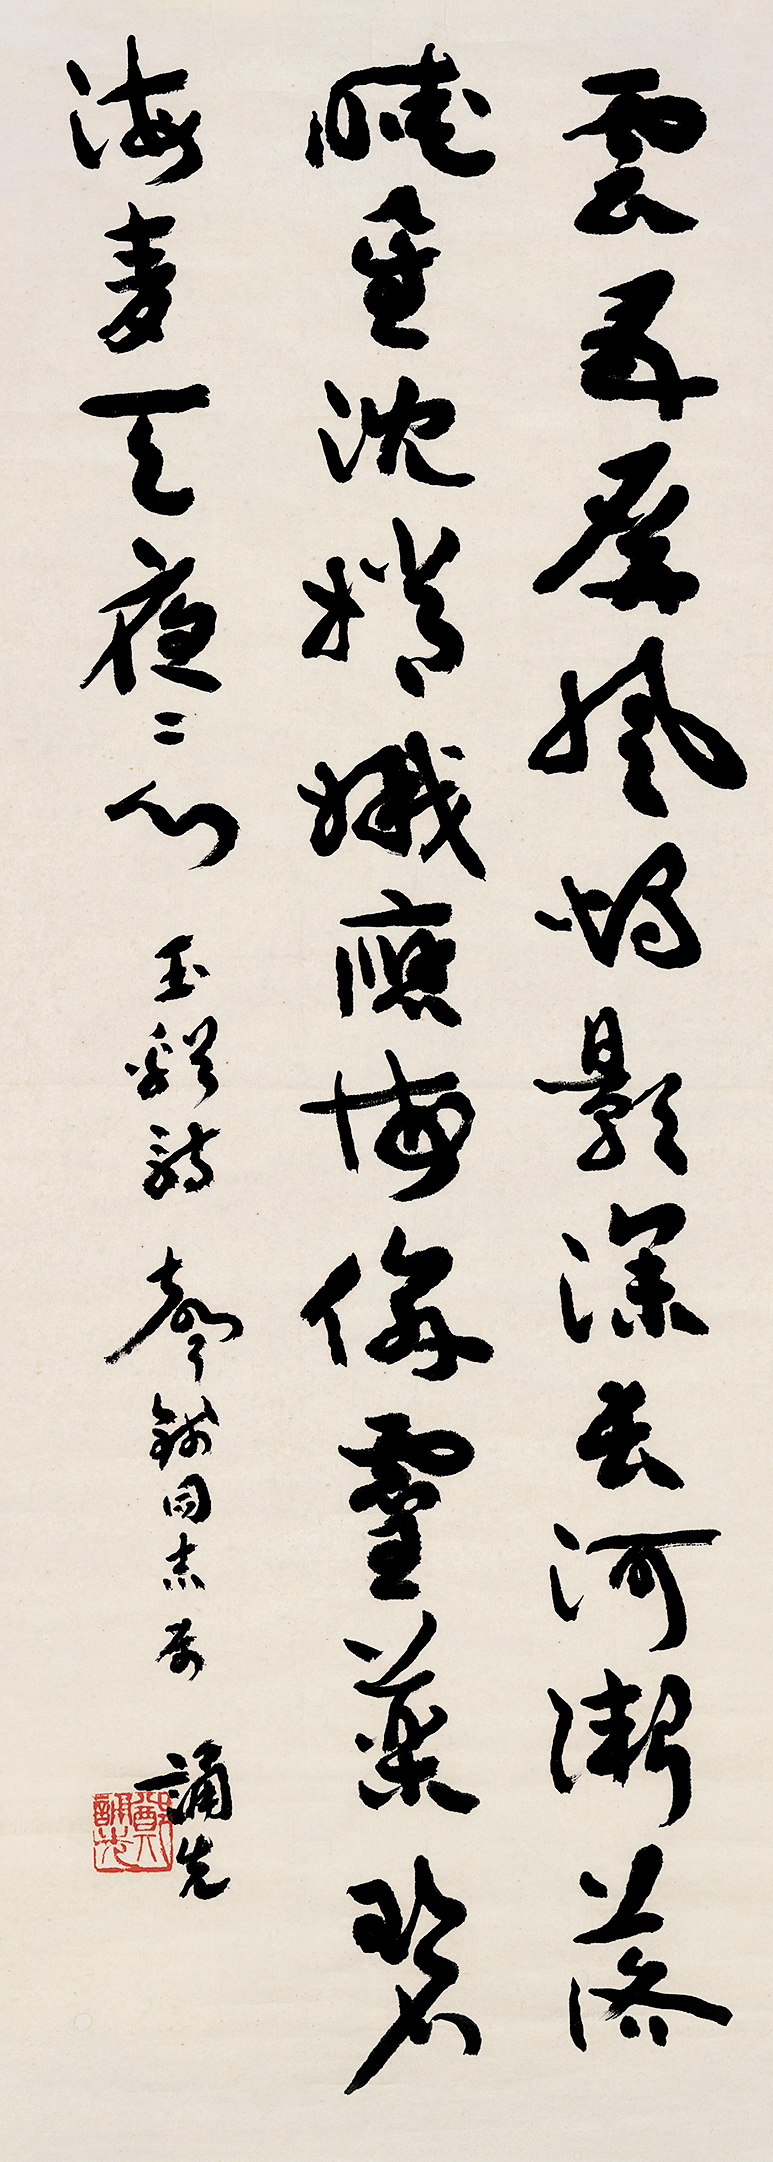 雲母屏風燭影深長河漸落
曉星沈嫦娥應悔偷靈藥碧
海青天夜〻心 玉谿詩 同志屬 誦先
鄭誦先